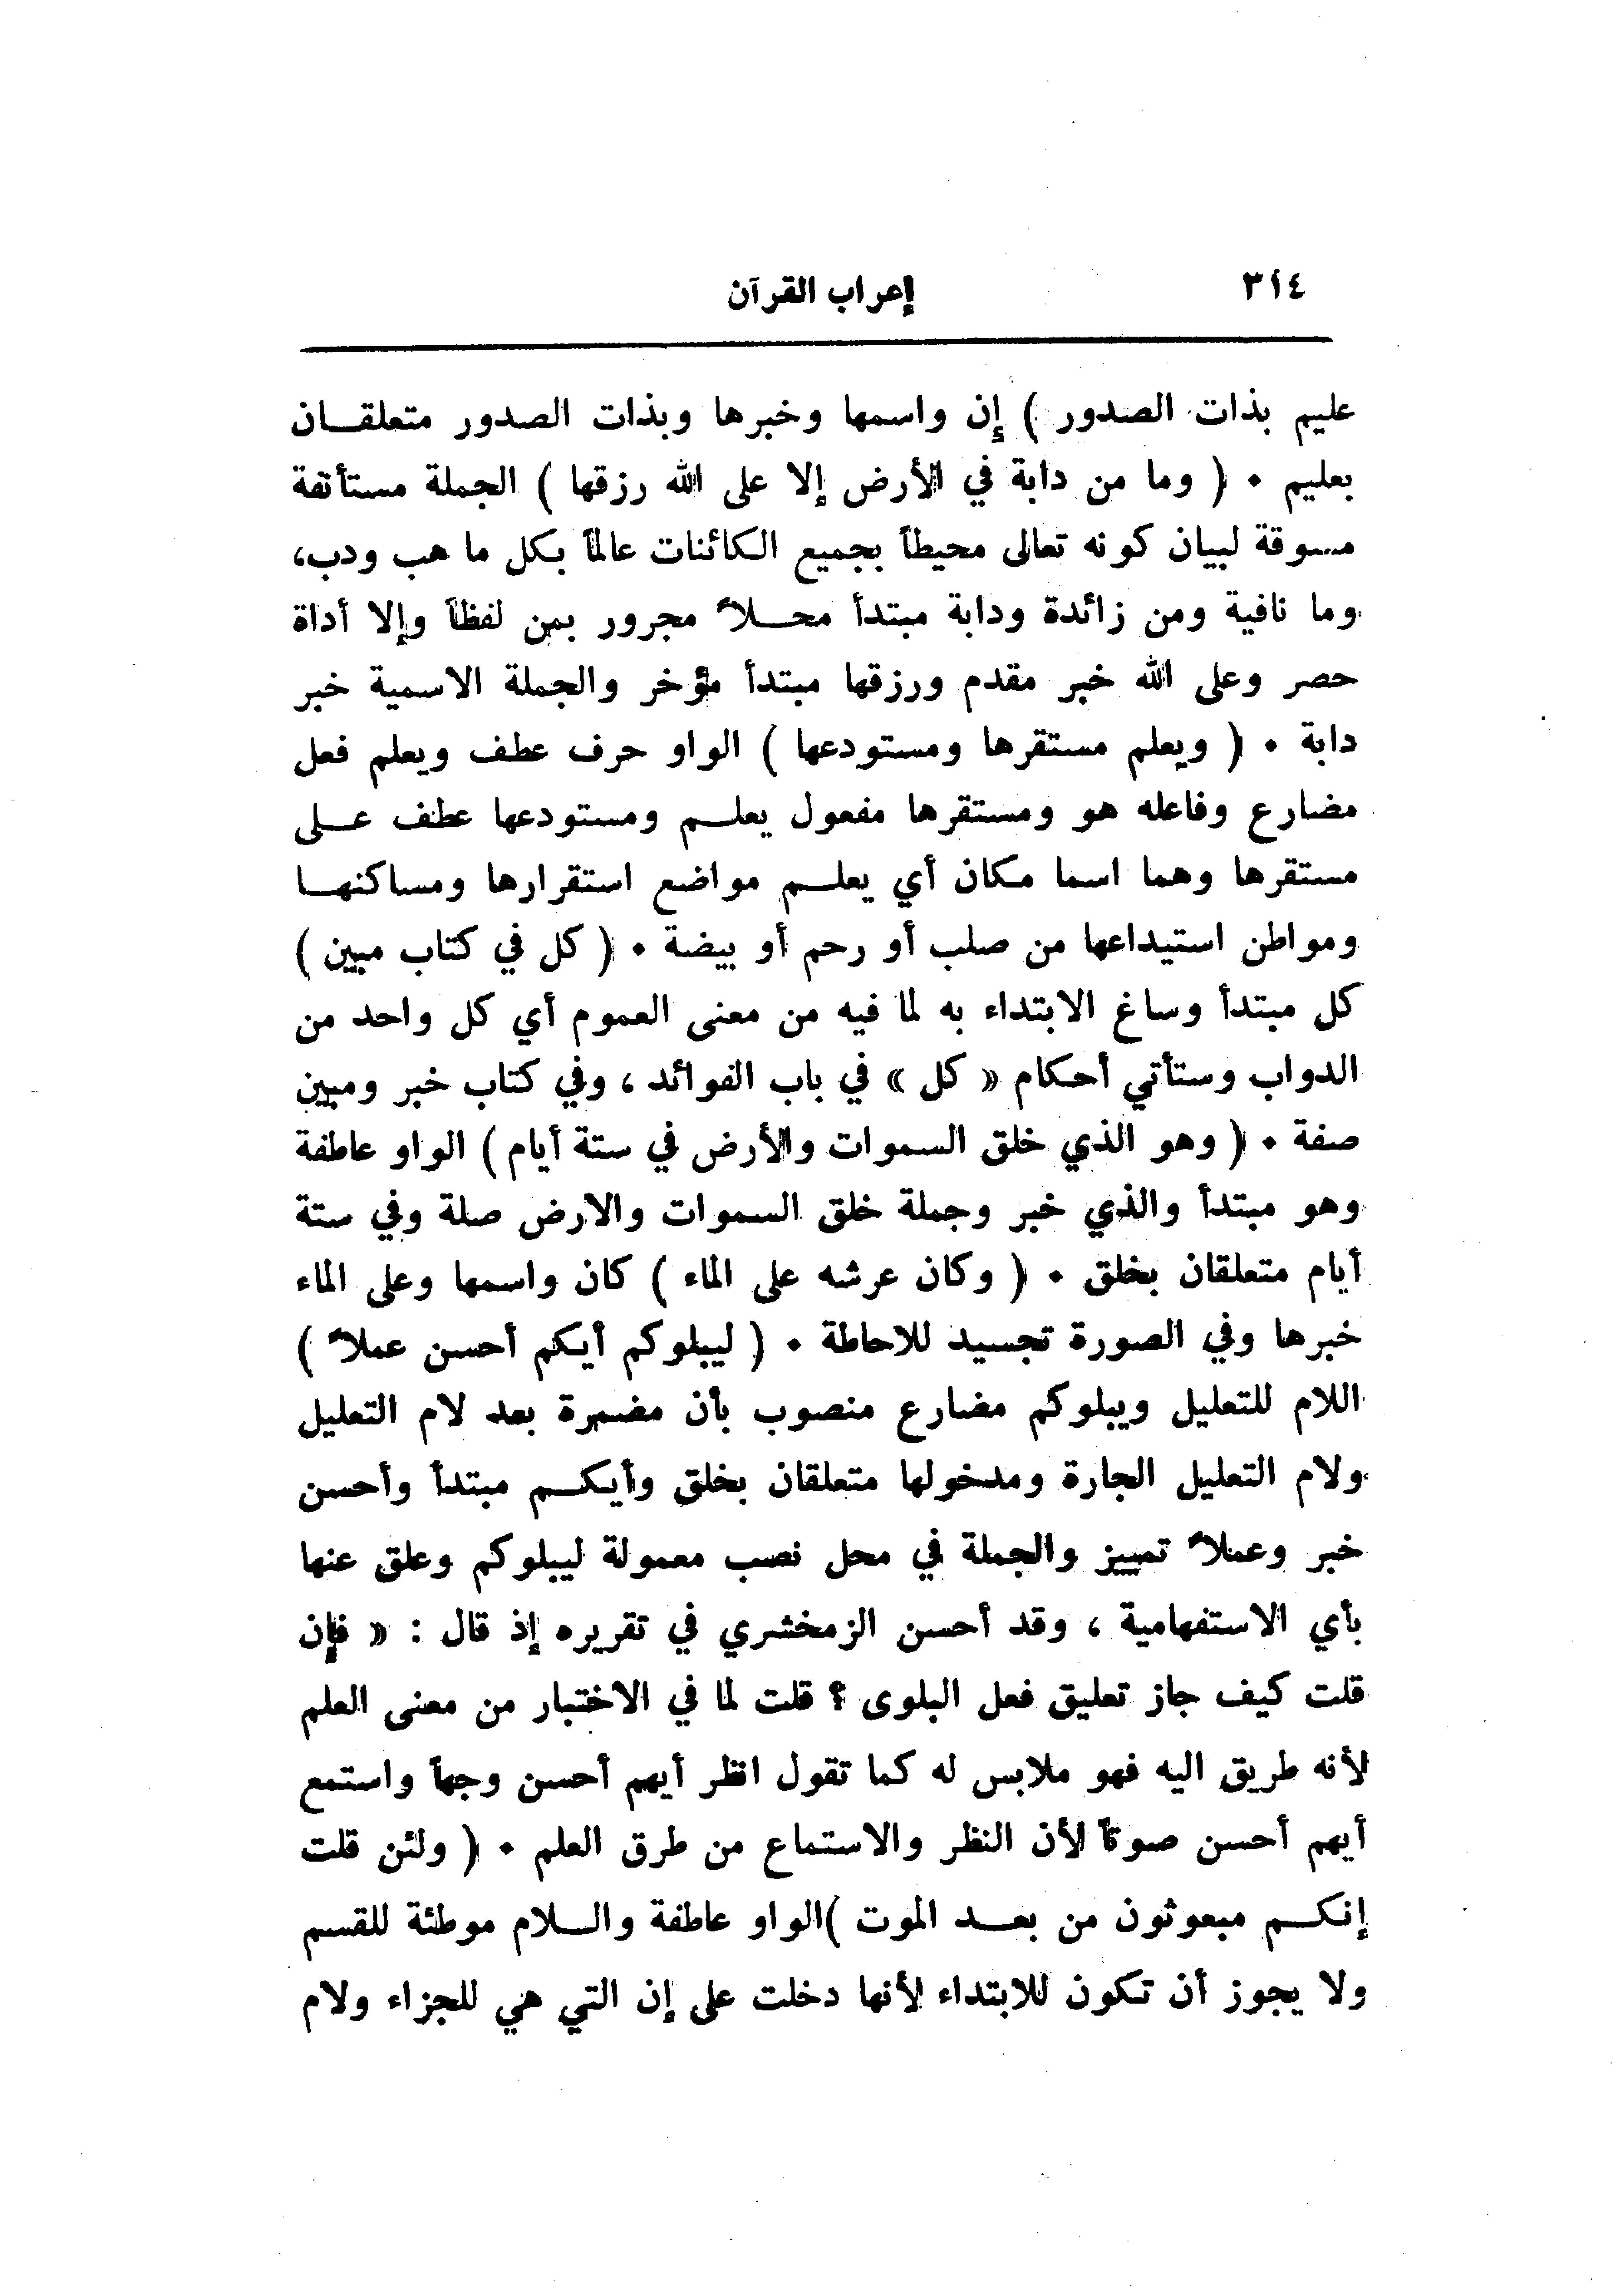 ٣١٤
إعراب القرآن
عليم بذات الصدور ) إن واسمها وخبرها وبذات الصدور متعلقـان
بعليم ٠ ( وما من دابة في الأرض إلا على الله رزقها ) الجملة مستأنفة
مسوقة لبيان كونه تعالى محيطاً بجميع الكائنات عالماً بكل ما هب ودب،
وما نافية ومن زائدة ودابة مبتدأ محـلاً مجرور بمن لفظاً وإلا أداة
حصر وعلى الله خبر مقدم ورزقها مبتدأ مؤخر والجملة الاسمية خبر
دابة ٠ ( ويعلم مستقرها ومستودعها ) الواو حرف عطف ويعلم فعل
مضارع وفاعله هو ومستقرها مفعول يعلـم ومستودعها عطف عـلى
مستقرها وهما اسما مكان أي يعلـم مواضع استقرارها ومساكنهـا
ومواطن استيداعها من صلب أو رحم أو بيضة ٠ ( كل في كتاب مبين )
كل مبتدأ وساغ الابتداء به لما فيه من معنى العموم أي كل واحد من
الدواب وستأتي أحكام « كل » في باب الفوائد ، وفي كتاب خبر ومبين
صفة ٠ ( وهو الذي خلق السموات والأرض في ستة أيام ) الواو عاطفة
وهو مبتدأ والذي خبر وجملة خلق السموات والارض صلة وفي ستة
أيام متعلقان بخلق ٠ ( وكان عرشه على الماء ) كان واسمها وعلى الماء
خبرها وفي الصورة تجسيد للاحاطة ٠ ( ليبلوكم أيكم أحسن عملاً )
اللام للتعليل ويبلوكم مضارع منصوب بأن مضمرة بعد لام التعليل
ولام التعليل الجارة ومدخولها متعلقان بخلق وأيكـم مبتدأ وأحسن
خبر وعملاً تمييز والجملة في محل نصب معمولة ليبلوكم وعلق عنها
بأي الاستفهامية ، وقد أحسن الزمخشري في تقريره إذ قال : « فإن
قلت كيف جاز تعليق فعل البلوى ؟ قلت لما في الاختبار من معنى العلم
لأنه طريق اليه فهو ملابس له كما تقول انظر أيهم أحسن وجهاً واستمع
أيهم أحسن صوتاً لأن النظر والاستماع من طرق العلم ٠ ( ولئن قلت
إنكـم مبعوثون من بعـد الموت )الواو عاطفة والـلام موطئة للقسم
ولا يجوز أن تكون للابتداء لأنها دخلت على إن التي هي للجزاء ولام